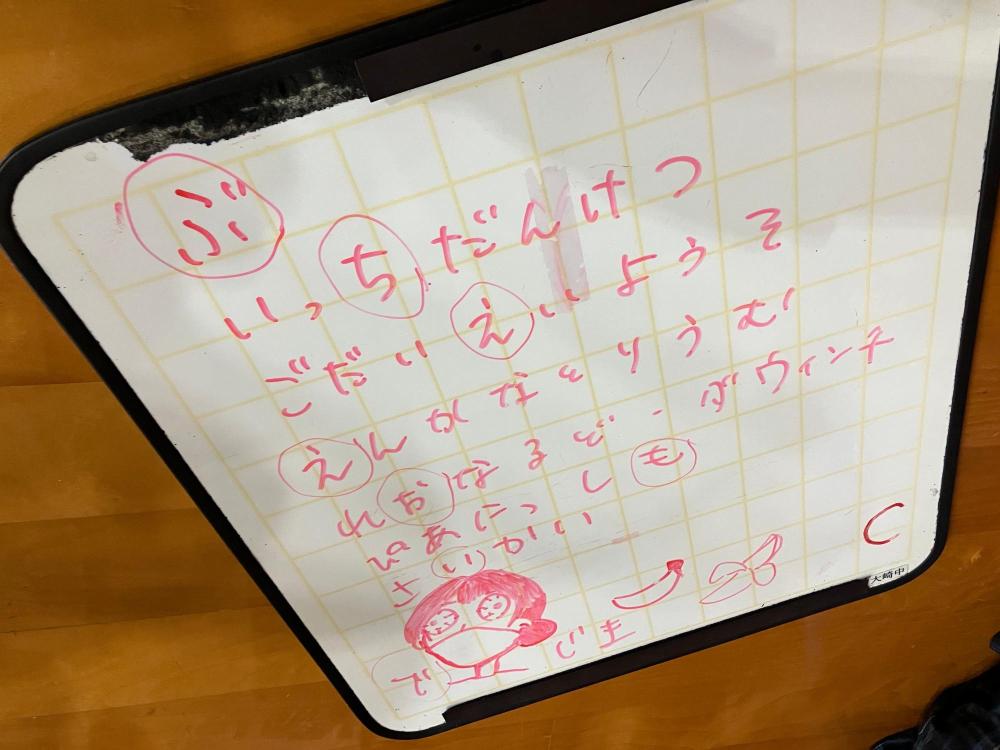 ぶ
いっちだんけつ
ごだいえいようそ
えんかなとりうむ
れおなるど・ダウィンチ
ぴあにっしも
さいかい
でじま
C
大崎中